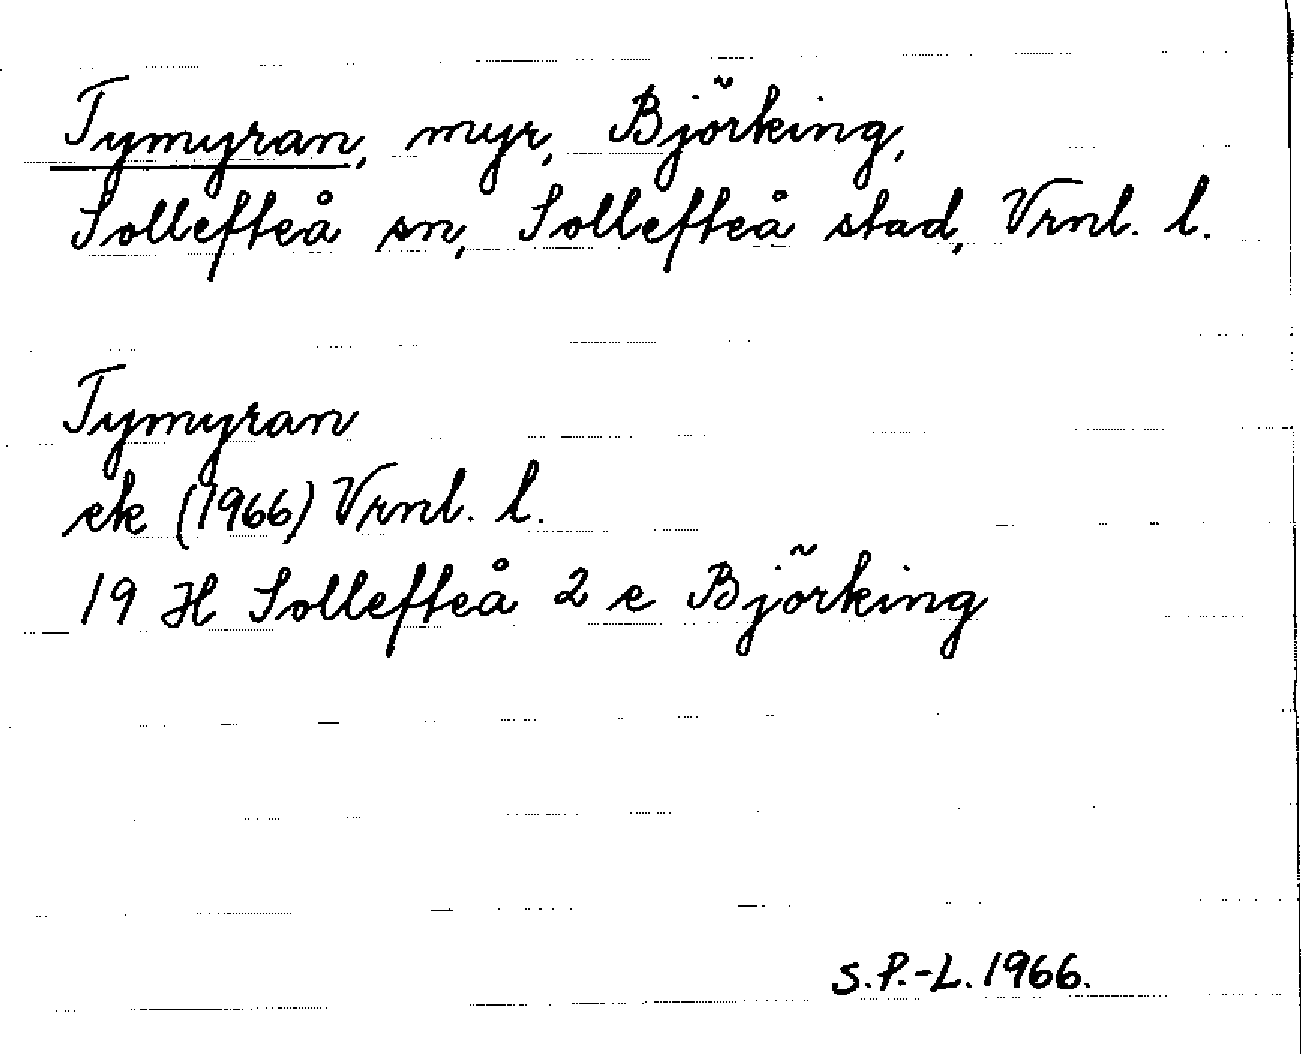 Tymyran, myr, Björking,
Sollefteå sn, Sollefteå stad, Vrnl. l.
Tymyran
ek (1966) Vrnl. l.
19 H Sollefteå 2 e Björking
S.P.-L. 1966.